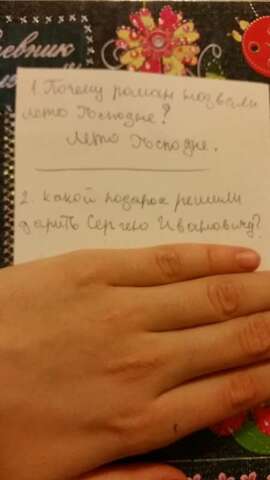 Дневник
1. Почему роман назвали
лето Господне?
Лето Господне.
2. Какой подарок решили
дарить Сергею Ивановичу?